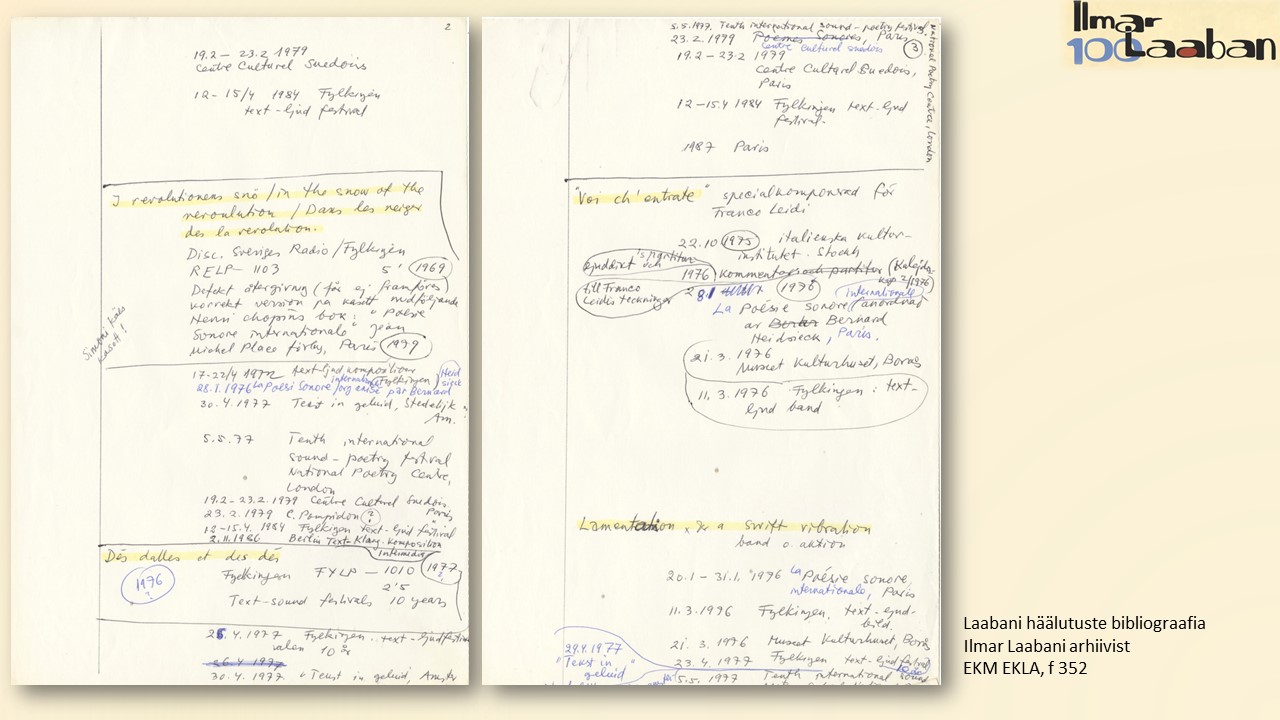 2
19.2 – 23.2 1979
Centre Culturel Suedois
12 - 15/4 1984 Fylkingen
text-ljud festival
I revolutionens snö / in the snow of the
revoulution / Dans les neiges
des la revolution.
Disc. Sveriges Radio / Fylkingen
RELP – 1103 5' 1969
Defekt återgivning (får ej framföras)
korrekt version på kasett medföljande
Henri Chopins box: "Poesie
Sonore internationale" Jean
Michel Place förlag, Paris 1979
kasett!
17-22/4 1972 text-ljud kompositioner
Fylkingen
28.1.1976 La Poési Sonore internationale / organisé par Bernard Heidsieck
30.4.1977 Text in geluid, Stedelijk
Am.
5.5.77 Tenth international
sound-poetry festival
National Poetry Centre,
London
19.2 - 23.2. 1979 Centre Culturel Suedois,
Paris
23.2. 1979 C. Pompidon ?
12-15.4. 1984 Fylkigen text-ljud festival
2.11.1986 Berlin Text-Klang-Komposition
Intermedia
Dés dalles et des dés
1976 ?
Fylkingen FYLP – 1010 1977 ?
2'5
Text-sound festivals 10 years
25.4.1977 Fylkingen. text-ljudfestivalen 10 år
26.4 1977
30.4. 1977 "Text in geluid, Amster
5.5.1977. Tenth international sound-poetry festival,
National Poetry Centre, London
23.2. 1979 Poémes Sonores, Paris
Centre Culturel suedois
3
19.2 – 23.2 1979
Centre Culturel Suedois,
Paris
12 – 15.4 1984 Fylkingen text-ljud
festival.
1987 Paris
"Voi ch'entrate" specialkomponerad för
Franco Leidi
22.10 1975 italienska kultur-
institutet. Stockh
ljuddikt och
's partitur
till Franco
Leidis teckningar
1976 Kommentar och partitur (Kalejdo-
2/1976)
28.1 1976
La Poésie sonore internationale / anordnad
av Bernard
Heidsieck, Paris.
21.3. 1976
Museet Kulturhuset, Borås
11.3. 1976 Fylkingen: text-
ljud band
Lamentation x a swift vibration
band o. aktion
20.1 – 31.1. 1976 La Poésie sonore,
internationale, Paris
11.3.1976 Fylkingen, text-ljud-
bild.
21.3. 1976 Museet Kulturhuset, Borås
29.4.1977
"Tekst in
geluid"
23.4.1977 Fylkingen text-ljud festival
5.5.1977 Tenth international sound
Ilmar
100 Laaban
Laabani häälutuste bibliograafia
Ilmar Laabani arhiivist
EKM EKLA, f 352